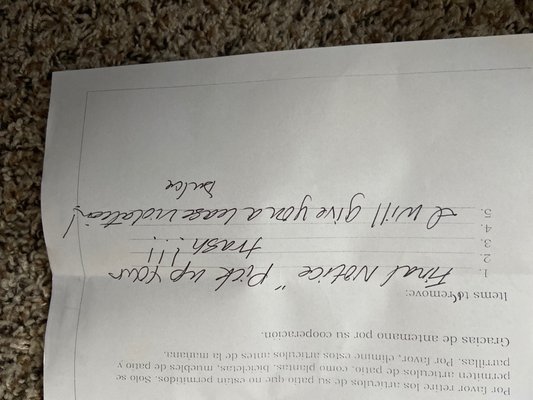 Por favor retire los artículos de su patio que no están permitidos. Solo se
permiten artículos de patio, como plantas, bicicletas, muebles de patio y
parrillas. Por favor, elimine estos artículos antes de la mañana.
Gracias de antemano por su cooperacion.
Items to remove:
1. Final Notice "Pick up your
2.
3. trash!!!
4.
5. I will give you a lease violation!